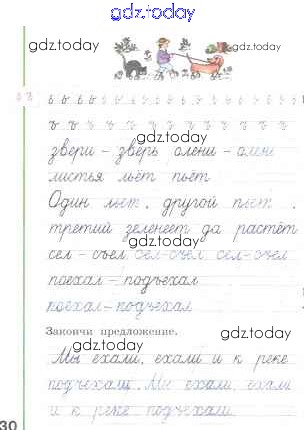 gdz.today
gdz.today
gdz.today
ъ ъ ъ ъ ъ ъ ъ ъ ъ ъ ъ ъ
gdz.today
звери - зверь олени - олень
листья льёт пьёт
Один льёт, другой пьёт,
gdz.today
gdz.today
третий зеленеет да растёт
gdz.today
сел - съел сел-съел сел-съел
поехал - подъехал
поехал - подъехал
Закончи предложение.
gdz.today
gdz.today
Мы ехали, ехали и к реке
подъехали. Мы ехали, ехали
gdz.today
и к реке подъехали.
30